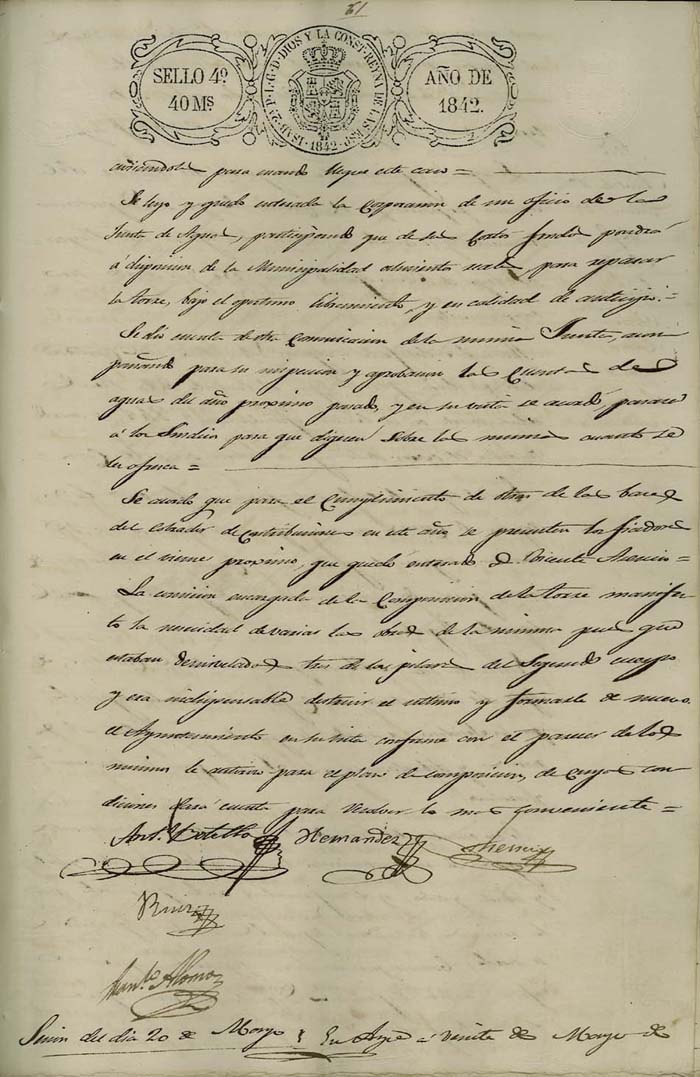 51
SELLO 4º
40 Ms
ISAB. 2ª P. L. G. D. DIOS Y LA CONST. REYNA DE LAS ESP.
1842
AÑO DE
1842.
para cuando llegue este caso =
Se leyo y quedo enterada la Corporacion de un oficio de la
Junta de Aguas, participando que de sus cortos fondos pondrá
á disposicion de la Municipalidad ochocientos reales, para reparar
la torre, bajo el oportuno libramiento, y en calidad de anticipo. =
Se dio cuenta de otra Comunicacion de la misma Junta, acom
pañando para su inspeccion y aprobacion las Cuentas de
aguas del año proximo pasado, y en su vista se acordó, pasase
á los Sindicos para que digan sobre las mismas cuanto se
les ofresca =
Se acordo que para el Cumplimiento de otras de las bases
del Cobrador de Contribuciones en este año se presenten los fiadores
en el viernes proximo, que quedó enterado D. Vicente Asencio =
La comision encargada de la Composicion de la torre manifes
to la necesidad de variar las obras de la misma pues que
estaban desnivelados tres de los pilares del Segundo cuerpo
y era indispensable destruir el ultimo y formarle de nuevo.
el Ayuntamiento en su vista conforme con el parecer de los
mismos le autorizo para el plan de composicion, de cuyas con
diciones dará cuenta para resolver lo mas conveniente =
Ant.º Botella Hernandez
Ruiz
Man.l Alonso
Sesion del dia 20 de Marzo En Aspe á veinte de Marzo de